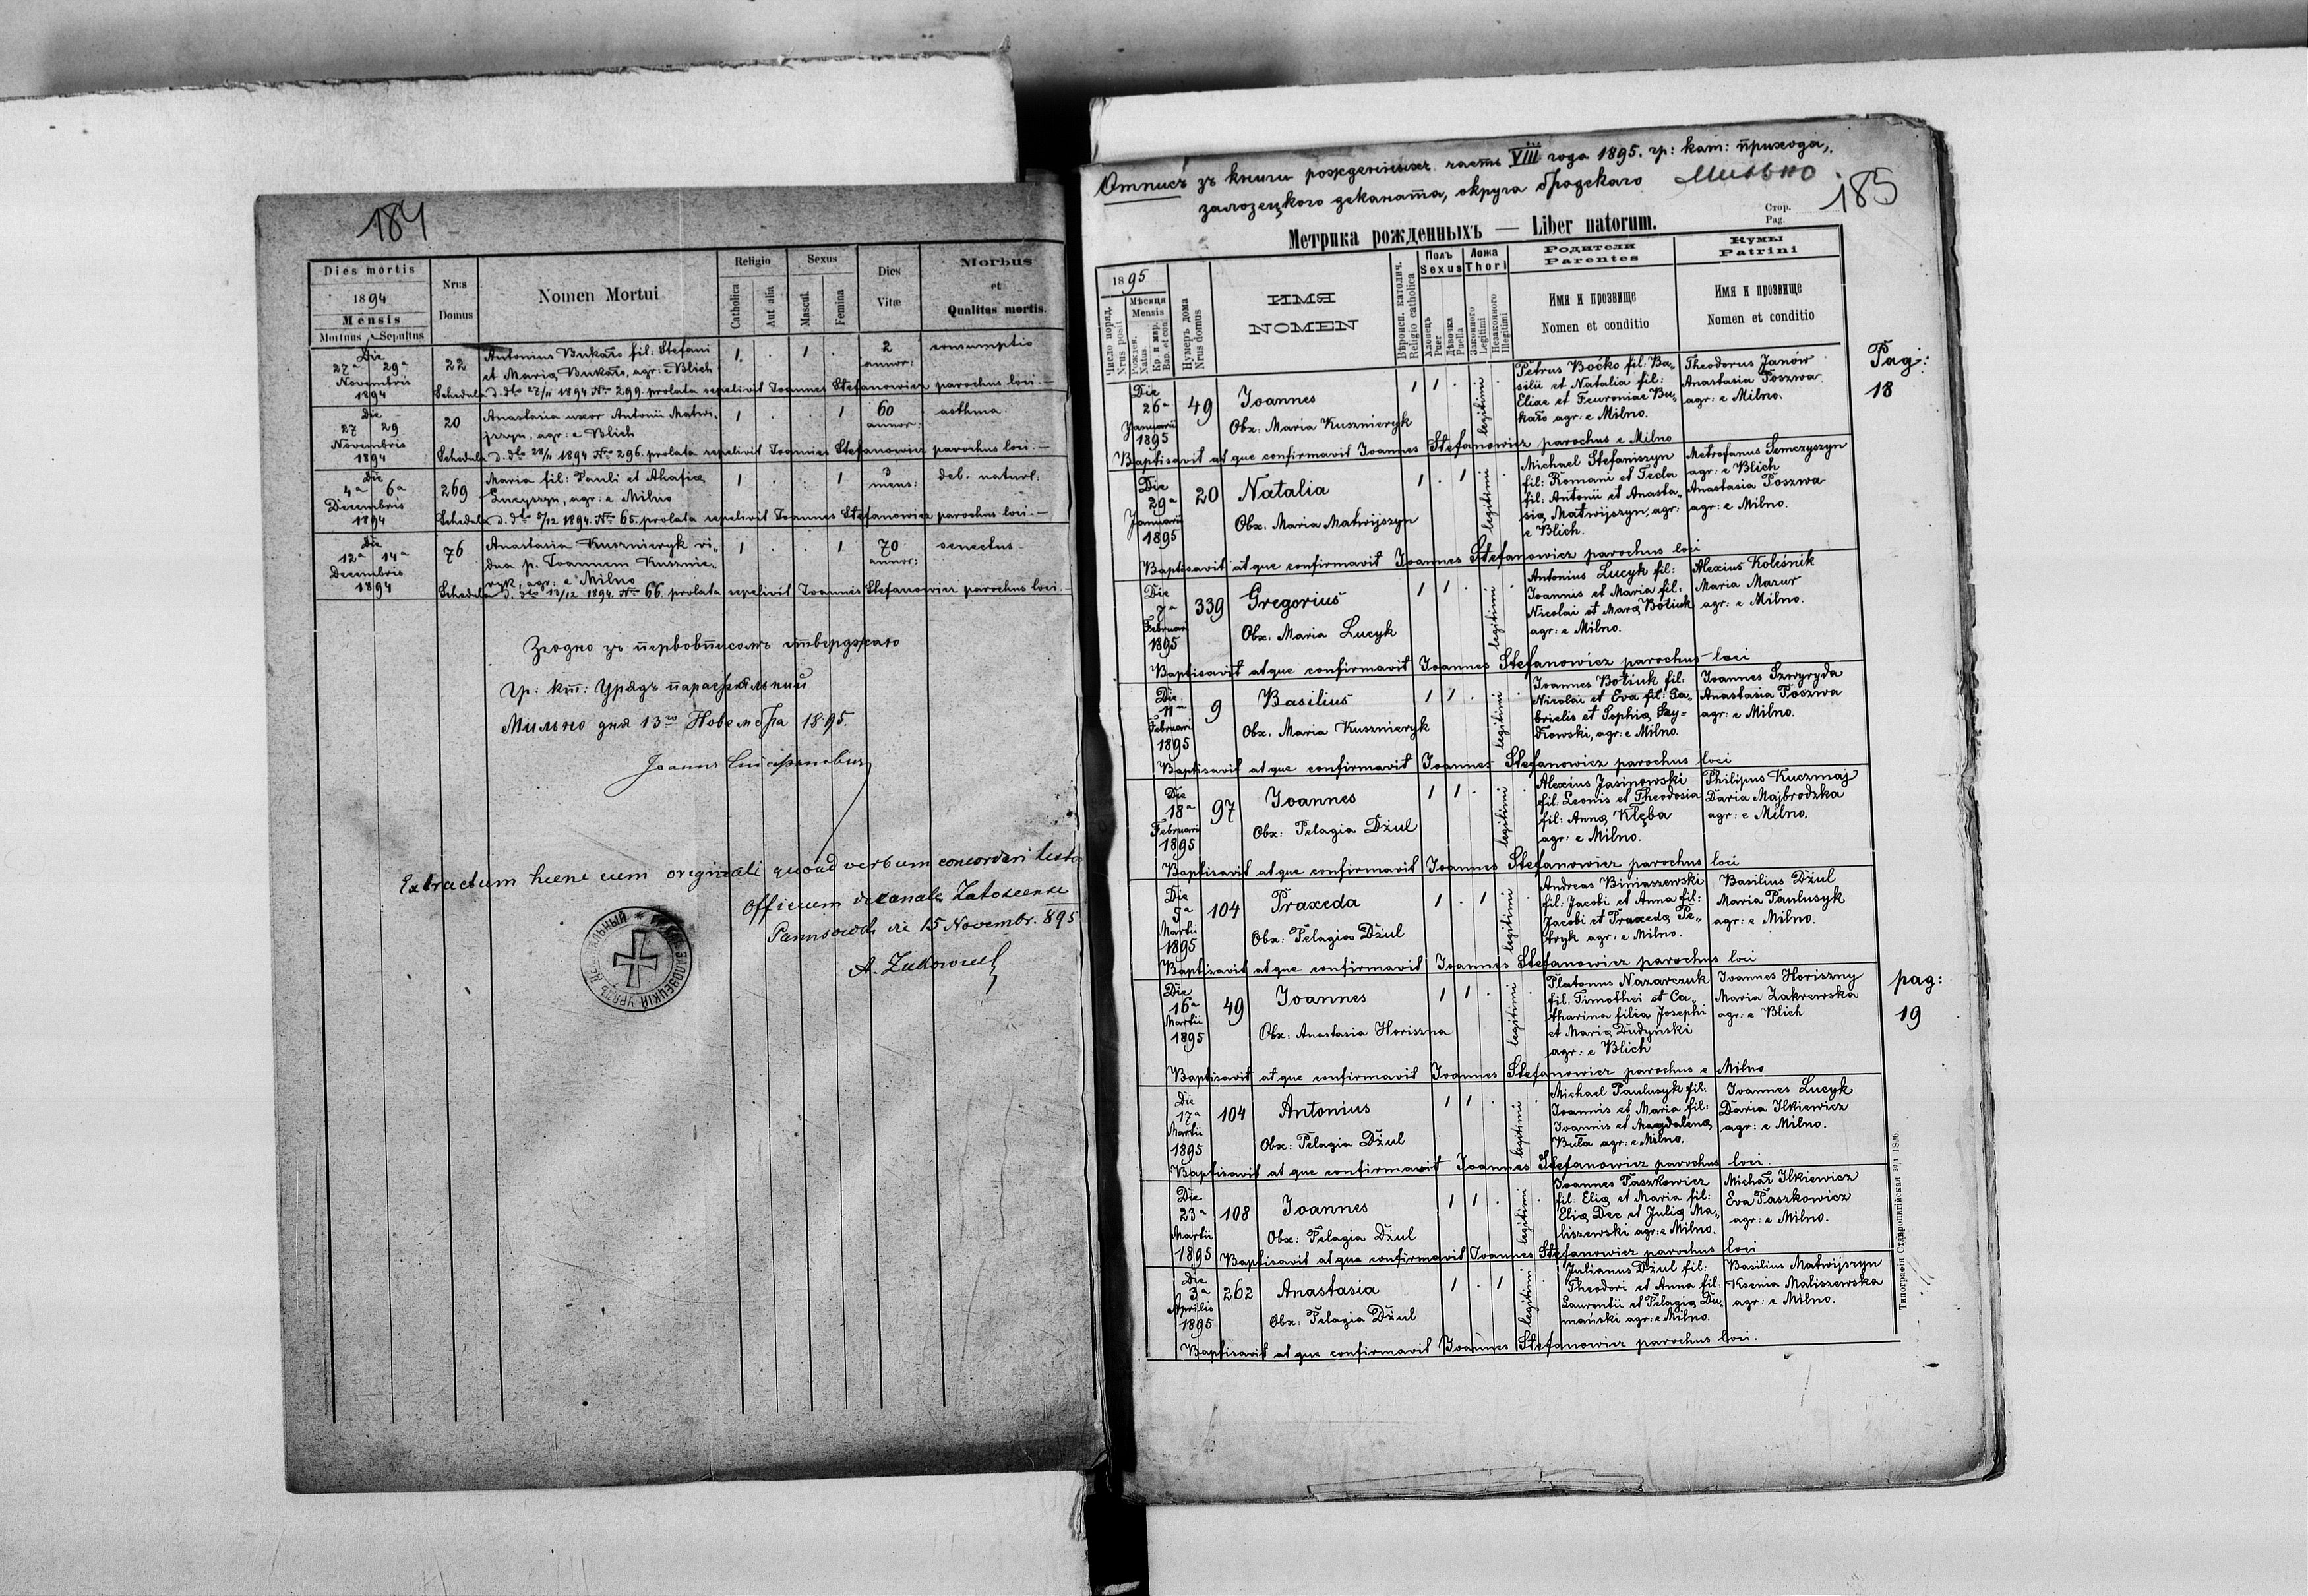 184
Dies mortis
1894
Mensis
Mortuus Sepultus
Nrus
Domus
Nomen Mortui
Religio
Catholica
Aut alia
Sexus
Mascul.
Femina
Dies
Vitæ
Morbus
et
Qualitas mortis.
Die
27a 29a
Novembris
1894
22
Antonius Bukało fil: Stefani
et Maria Bukało, agr: e Blich
1 . 1 .
2
annor:
consumptio
Schedula d. dto 28/11 1894 No 299. prolata sepelivit Joannes Stefanowicz parochus loci.—
Die
27 29
Novembris
1894
20
Anastasia uxor Antonii Matwi-
jszyn, agr: e Blich
1 . . 1
60
annor:
asthma
Schedula d. dto 28/11 1894 No 296. prolata sepelivit Joannes Stefanowicz parochus loci.—
Die
4a 6a
Decembris
1894
269
Maria fil: Pauli et Ahafia
Lucyszyn, agr: e Milno
1 . . 1
3
mens:
deb. natural:
Schedula d. dto 5/12 1894. No 65. prolata sepelivit Joannes Stefanowicz parochus loci.—
Die
12a 14a
Decembris
1894
76
Anastasia Kusznieryk vi-
dua p. Joannem Kusznie-
ryk, agr: e Milno
1 . . 1
70
annor:
senectus
Schedula d. dto 13/12 1894. No 66. prolata sepelivit Joannes Stefanowicz parochus loci.—
Згодно зъ первовписомъ стверджаю
Гр: кат: Урядъ парохіяльный
Мильно дня 13го Новембра 1895.
Extractum hunc cum originali quoad verbum concordari testor
Officium decanale Załoscense
die 15 Novembr. 895
Отписъ зъ книги рожденныхъ часть VIII года 1895. гр: кат: прихода,
залозецкого деканата, округа бродскаго Мильно.
185
Метрика рожденныхъ — Liber natorum.
Стор.
Pag.
1895
Число поряд.
Nrus posit
Мѣсяця
Mensis
Рожден.
Natus
Кр. и мѵр.
Bap. et con.
Нумеръ дома
Nrus domus
ИМЯ
NOMEN
Вѣроисп. католич.
Religio catholica
Полъ
Sexus
Хлопецъ
Puer
Дѣвочка
Puella
Ложа
Thori
Законного
Legitimi
Незаконного
Illegitimi
Родители
Parentes
Имя и прозвище
Nomen et conditio
Кумы
Patrini
Имя и прозвище
Nomen et conditio
Pag:
18
Die
26a
Januarii
1895
49
Joannes
Obx. Maria Kusznieryk
1 1 . legitimi .
Petrus Boćko fil: Ba-
silii et Natalia fil:
Eliae et Feuroniae Bu-
kało agr: e Milno.
Theodorus Janów
Anastasia Poszwa
agr: e Milno.
Baptisavit atque confirmavit Joannes Stefanowicz parochus e Milno
Die
29a
Januarii
1895
20
Natalia
Obx. Maria Matwijszyn
1 . 1 legitimi
Michael Stefaniszyn
fil: Romani et Tecla
fil: Antonii et Anasta-
sia Matwijszyn, agr:
e Blich.
Metrofanus Semczyszyn
agr: e Blich
Anastasia Poszwa
agr: e Milno.
Baptisavit atque confirmavit Joannes Stefanowicz parochus loci
Die
7a
Februari
1895
339
Gregorius
Obx. Maria Lucyk
1 1 . legitimi .
Antonius Lucyk fil:
Joannis et Maria fil:
Nicolai et Mara Botiuk
agr: e Milno.
Alexius Koleśnik
Maria Mazur
agr: e Milno.
Baptisavit atque confirmavit Joannes Stefanowicz parochus loci
Die
11a
Februari
1895
9
Basilius
Obx. Maria Kusznieryk
1 1 . legitimi .
Joannes Botiuk fil:
Nicolai et Eva fil: Ga-
brielis et Sophia Szy=
kowski, agr: e Milno.
Joannes Szwyryda
Anastasia Poszwa
agr: e Milno.
Baptisavit atque confirmavit Joannes Stefanowicz parochus loci
Die
18a
Februari
1895
97
Joannes
Obx: Pelagia Dżul
1 1 . legitimi .
Alexius Jasinowski
fil: Leonis et Theodosia
fil: Anna Klęba
agr: e Milno.
Philipus Kuczmaj
Daria Majbrodzka
agr: e Milno.
Baptisavit atque confirmavit Joannes Stefanowicz parochus loci
Die
5a
Martii
1895
104
Praxeda
Obx: Pelagia Dżul
1 . 1 legitimi .
Andreas Biniaszewski
fil: Jacobi et Anna fil:
Jacobi et Praxeda Pe-
tryk agr: e Milno.
Basilius Dżul
Maria Paulusyk
agr: e Milno.
Baptisavit atque confirmavit Joannes Stefanowicz parochus loci
pag:
19
Die
16a
Martii
1895
49
Joannes
Obx: Anastasia Horiszna
1 1 . legitimi .
Platonus Nazarczuk
fil. Timothei et Ca-
tharina filia Josephi
et Maria Dudyński
agr: e Blich
Joannes Horiszny
Maria Zakrewska
agr: e Blich
Baptisavit atque confirmavit Joannes Stefanowicz parochus e Milno
Die
17a
Martii
1895
104
Antonius
Obx: Pelagia Dżul
1 1 . legitimi .
Michael Paulusyk fil:
Joannis et Maria fil:
Joannis et Magdalena
Buła agr: e Milno.
Joannes Lucyk
Daria Ilkiewicz
agr: e Milno.
Baptisavit atque confirmavit Joannes Stefanowicz parochus loci.
Die
23a
Martii
1895
108
Joannes
Obx: Pelagia Dżul
1 1 . legitimi .
Joannes Paszkowicz
fil. Elia et Maria fil:
Elia Dec et Julia Ma-
liszewski agr: e Milno.
Michał Ilkiewicz
Eva Paszkowicz
agr: e Milno.
Baptisavit atque confirmavit Joannes Stefanowicz parochus loci
Die
3a
Aprilis
1895
262
Anastasia
Obx: Pelagia Dżul
1 . 1 legitimi .
Julianus Dżul fil:
Theodori et Anna fil:
Laurentii et Pelagia Du-
mański agr: e Milno.
Basilius Matwijszyn
Ksenia Maliszewska
agr: e Milno.
Baptisavit atque confirmavit Joannes Stefanowicz parochus loci.
Типографія Ставропигійская